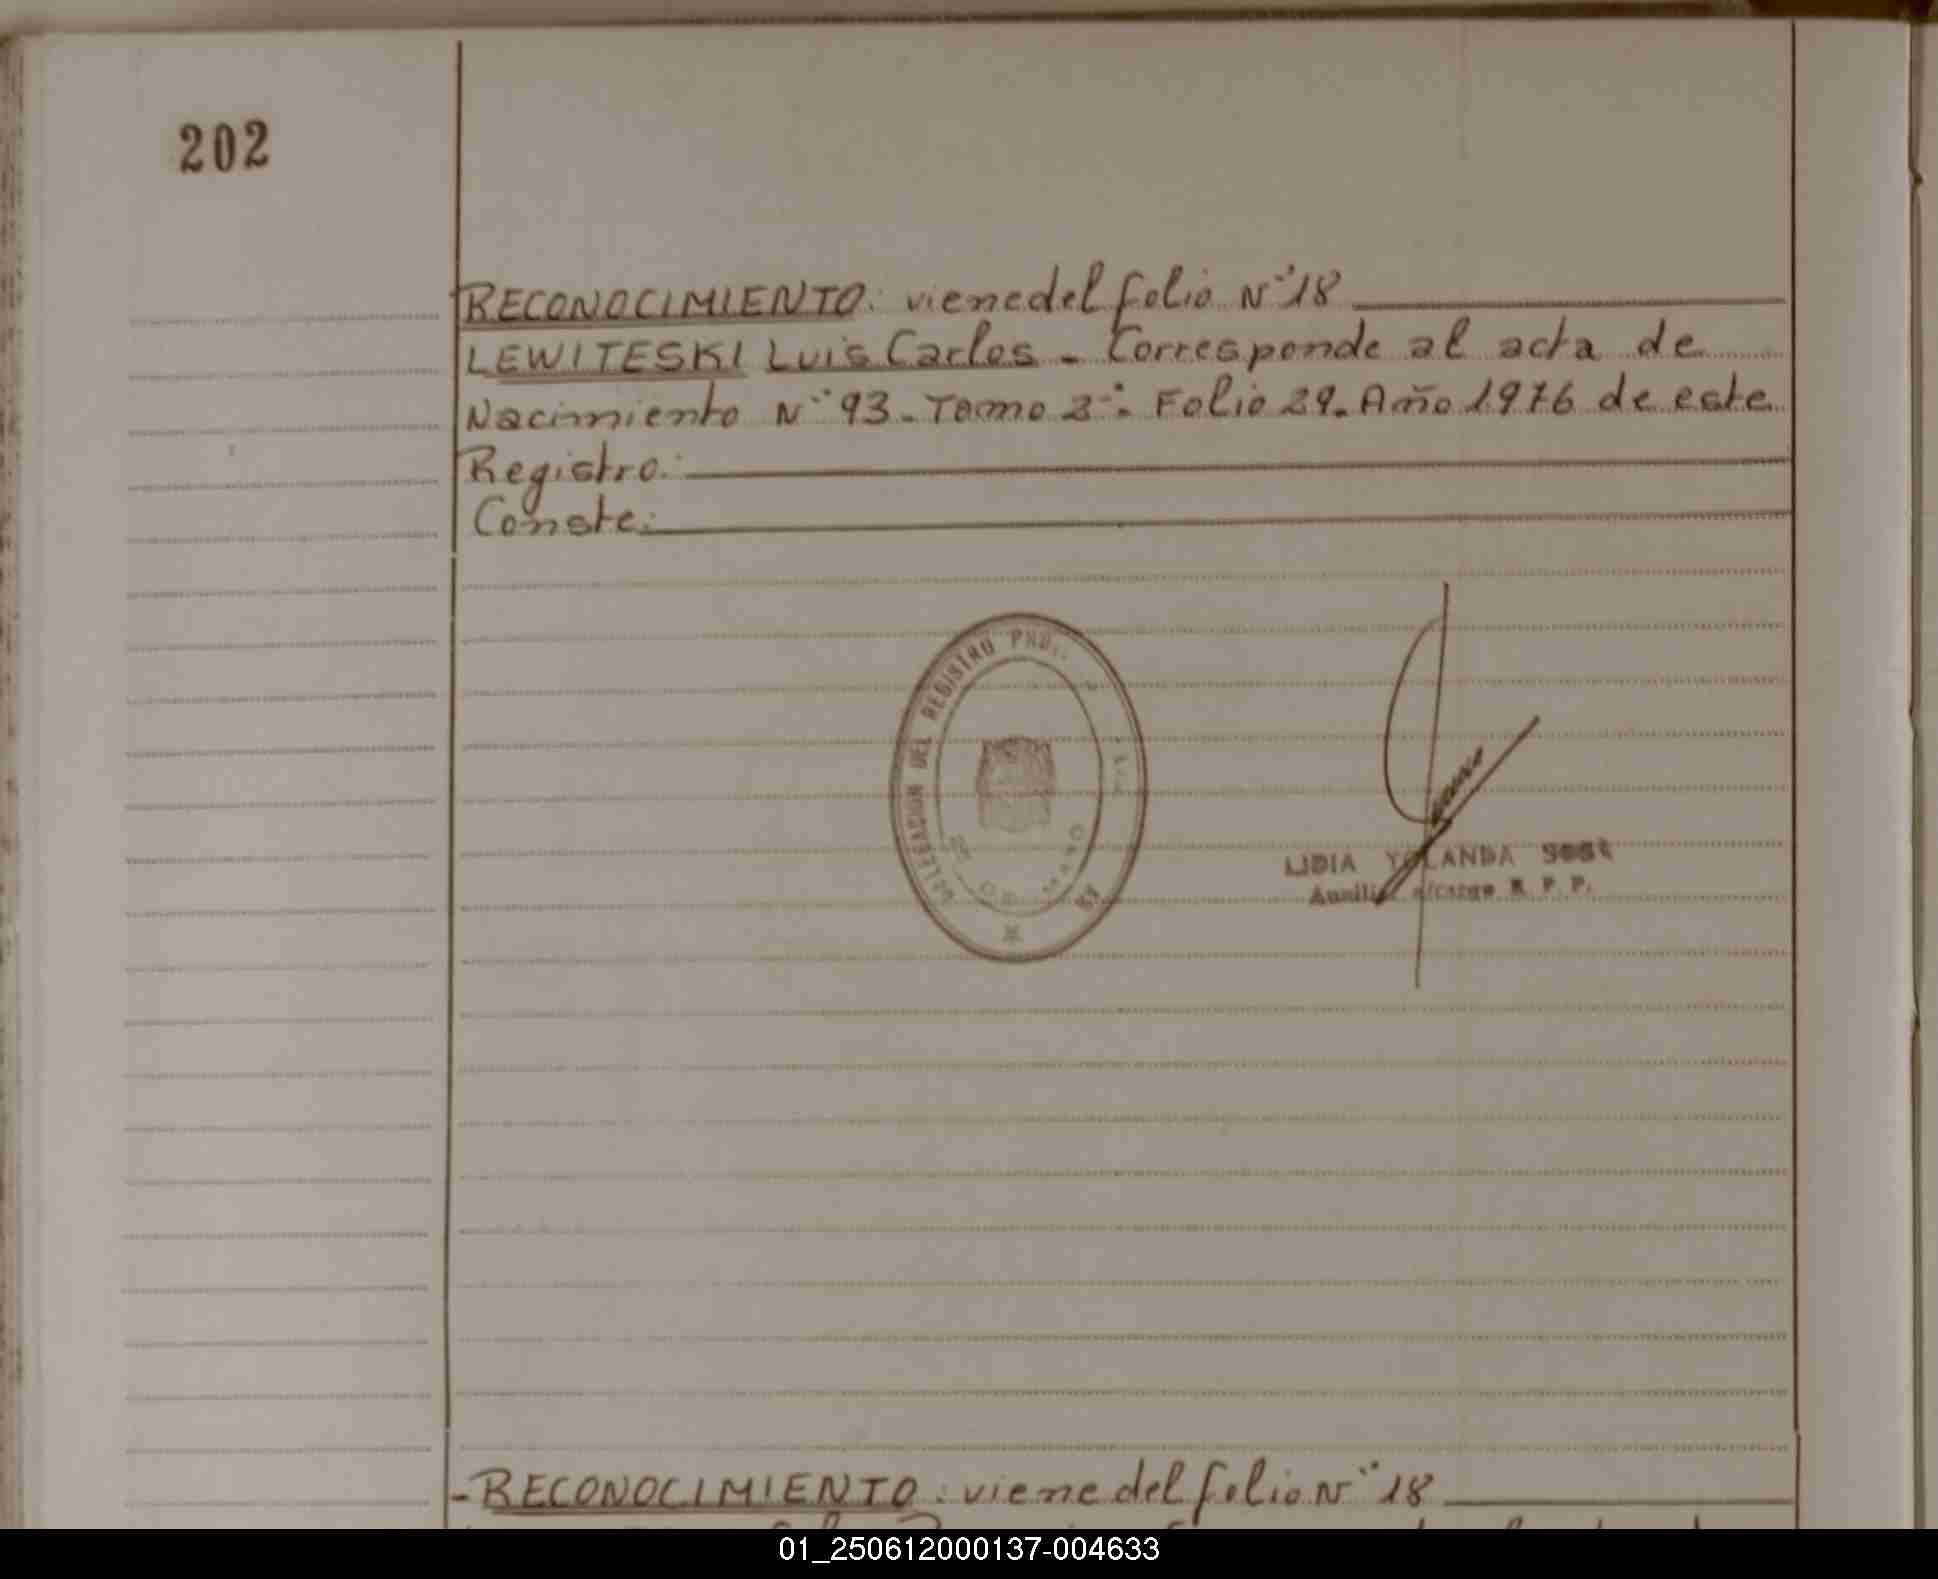 202
RECONOCIMIENTO: viene del folio N° 18
LEWITESKI Luis Carlos - Corresponde al acta de
Nacimiento N° 93 - Tomo 2°: Folio 29. Año 1976 de este
Registro:
Conste:
DELEGACION DEL REGISTRO
LIDIA YOLANDA
R. P. P.
- RECONOCIMIENTO: viene del folio N° 18
01_250612000137-004633